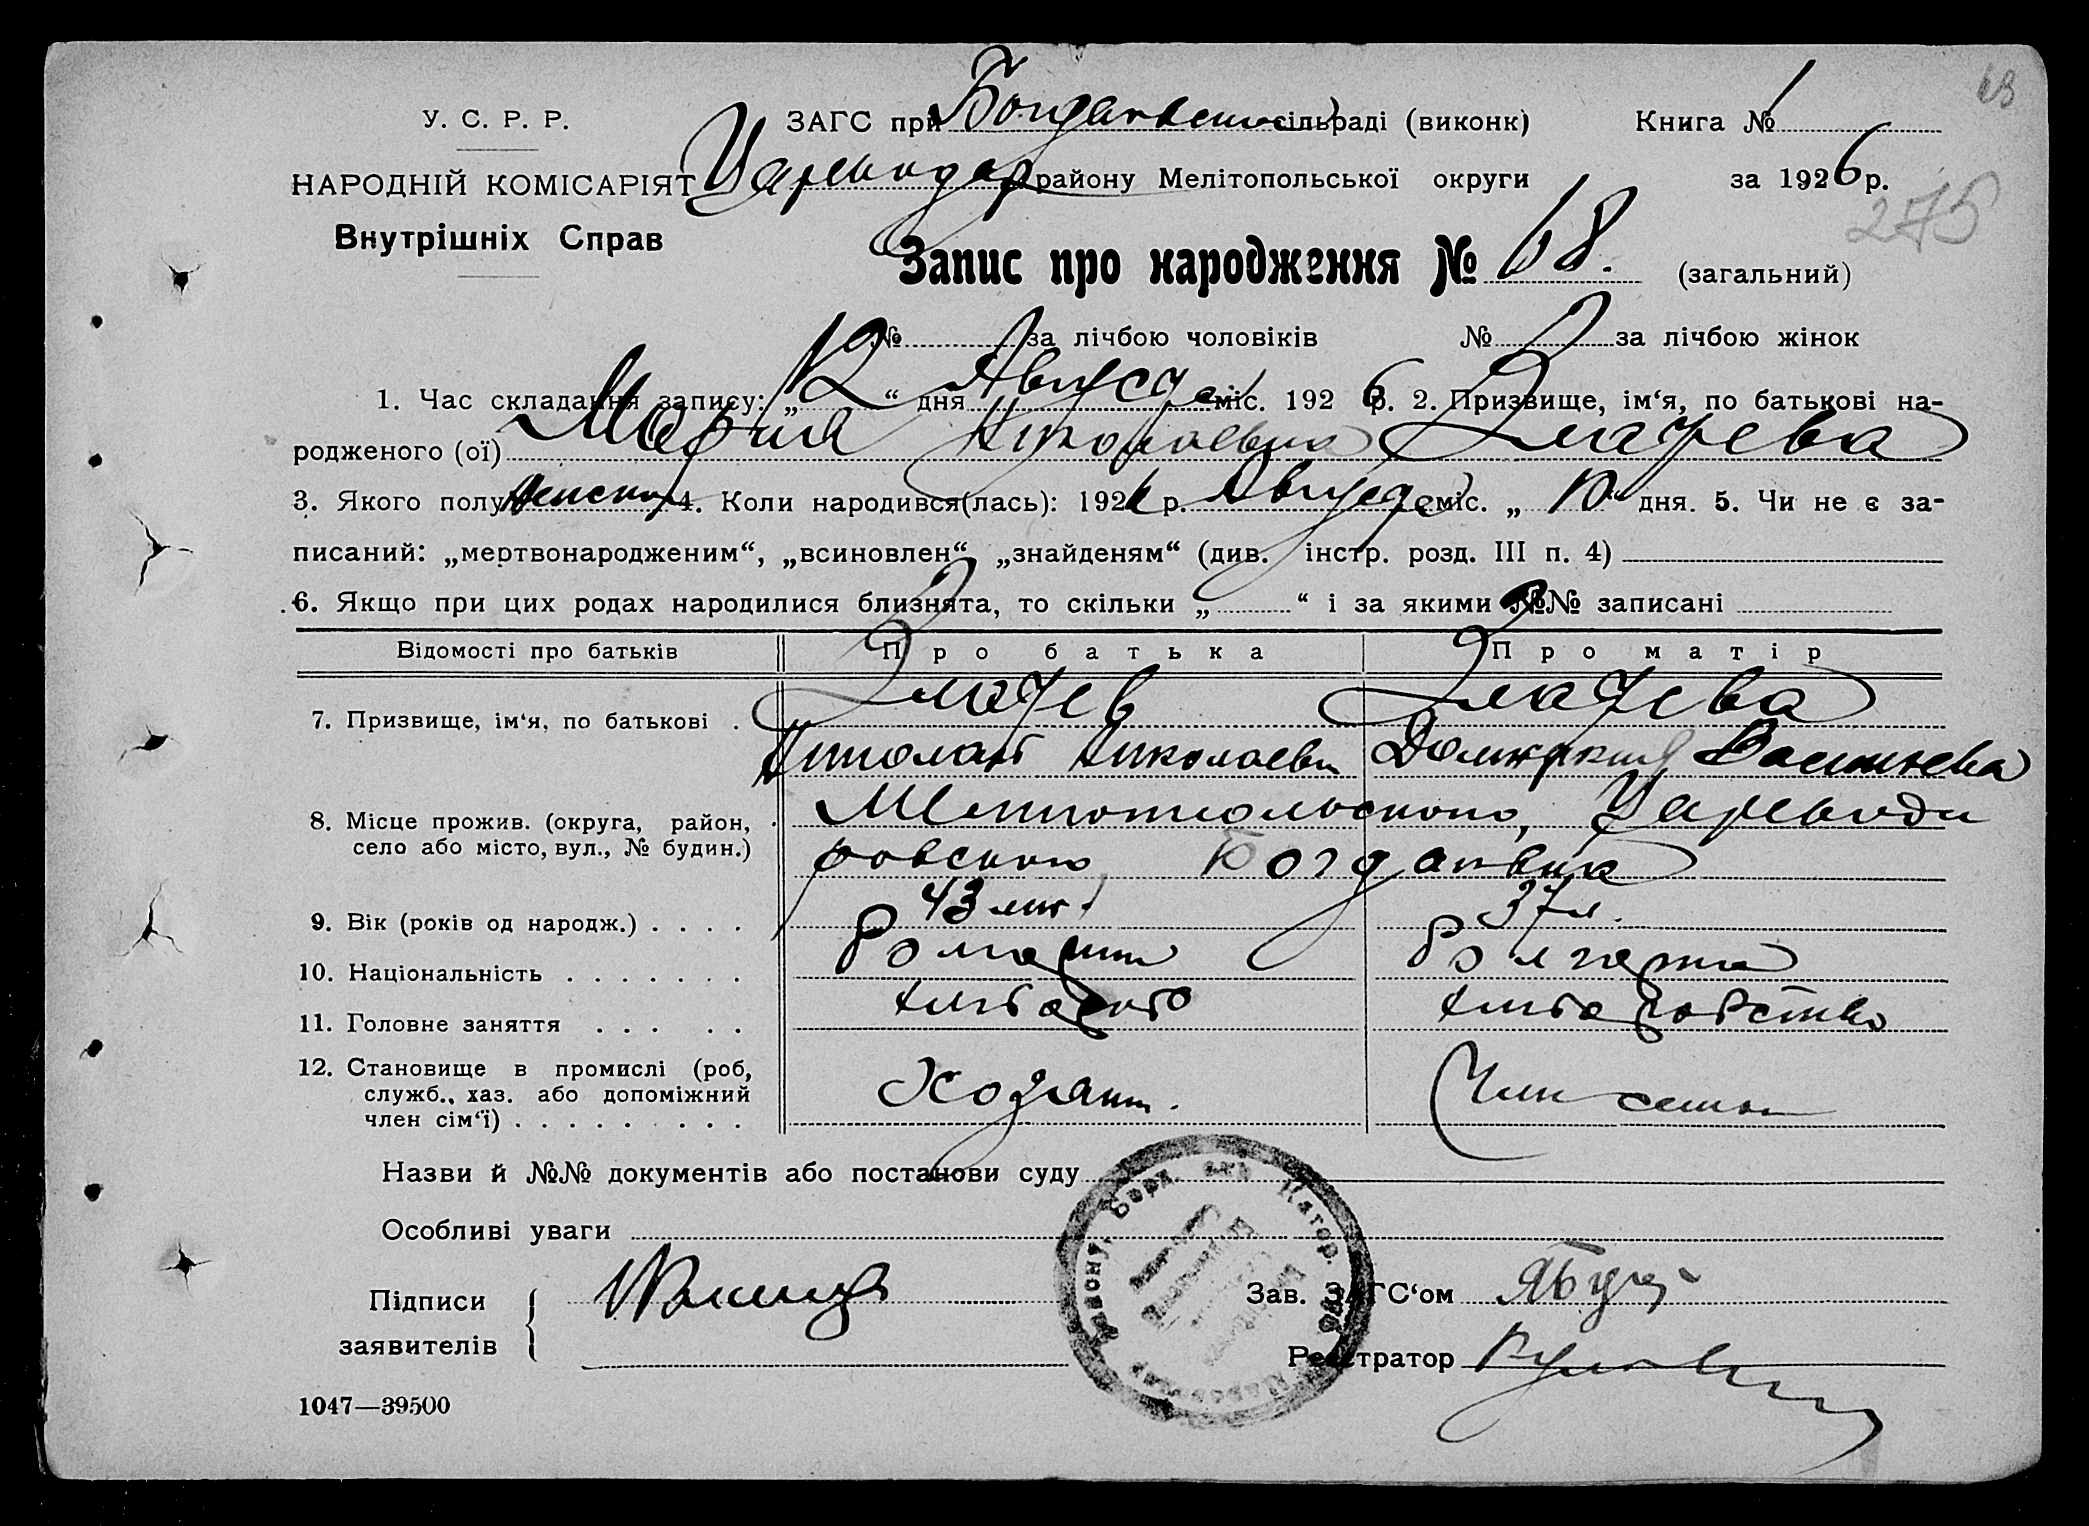 68
У. С. Р. Р. ЗАГС при Богдановской сільраді (виконк) Книга № 1
НАРОДНІЙ КОМІСАРІЯТ району Мелітопольської округи за 1926 р.
275
Внутрішніх Справ
Запис про народження № 68. (загальний)
№ за лічбою чоловіків № за лічбою жінок
1. Час складання запису: „12“ дня Августа міс. 1926 р. 2. Призвище, ім‘я, по батькові на-
родженого (ої) Мария Николаевна Златева
3. Якого полу женск 4. Коли народився(лась): 1926 р. Августа міс. „10“ дня. 5. Чи не є за-
писаний: „мертвонародженим“, „всиновлен“ „знайденям“ (див. інстр. розд. III п. 4)
6. Якщо при цих родах народилися близнята, то скільки „ “ і за якими №№ записані
Відомості про батьків Про батька Про матір
7. Призвище, ім‘я, по батькові . Златев Златева
Николай Николаеви Васильева
8. Місце прожив. (округа, район, Мелитопольского, Царевода
село або місто, вул., № будин.) ровского Богдановка
9. Вік (років од народж.) . . . . 43 лет 37 л.
10. Національність . . . . . . . Болгарин Болгарка
11. Головне заняття . . . . . хлебороб хлеборобство
12. Становище в промислі (роб, Хозяин. Член семьи
служб., хаз. або допоміжний
член сім‘ї) . . . . . . . . .
Назви й №№ документів або постанови суду
Особливі уваги
Підписи Зав. ЗАГС‘ом
заявителів Реєстратор
1047—39500